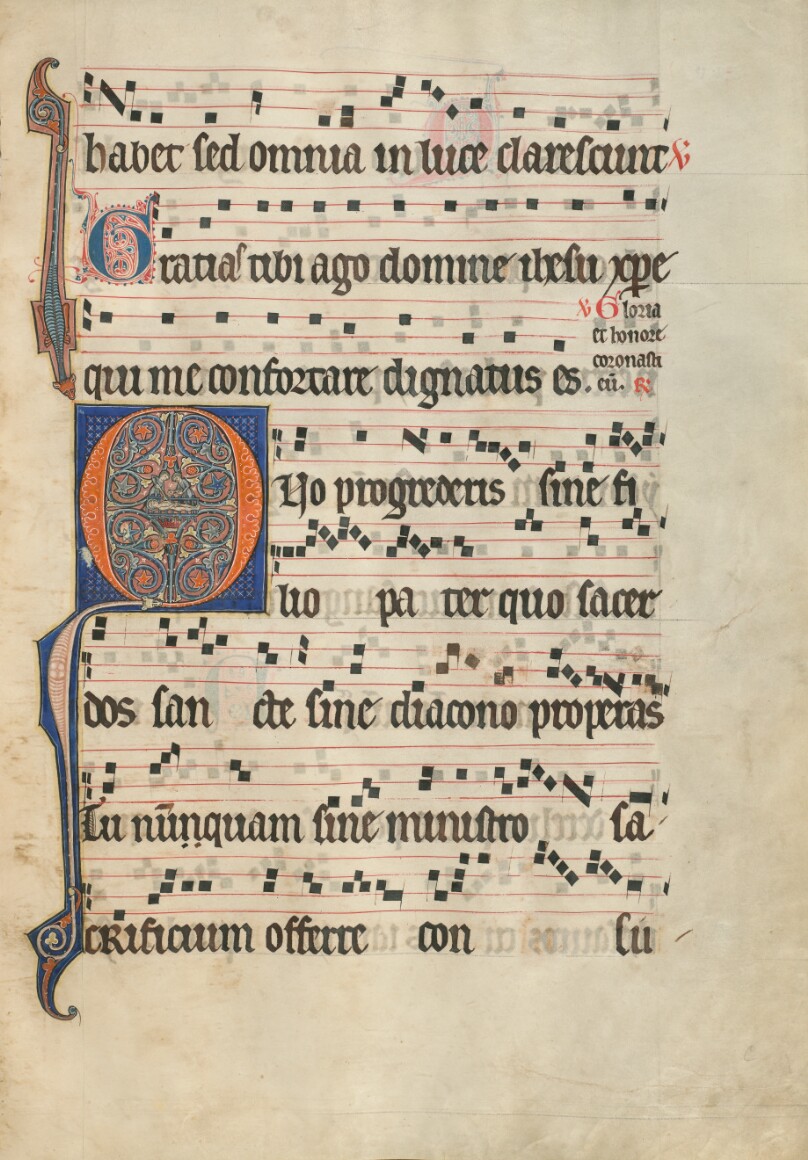 habet sed omnia in luce clarescunt ℣
Gratias tibi ago domine ihesu xp̄e
qui me confortare dignatus es.
℣ Gloria
et honore
coronasti
eū. ℟
Quo progrederis sine fi
lio pa ter quo sacer
dos san cte sine diacono properas
Tu nūnquam sine ministro sa
crificium offerre con sū